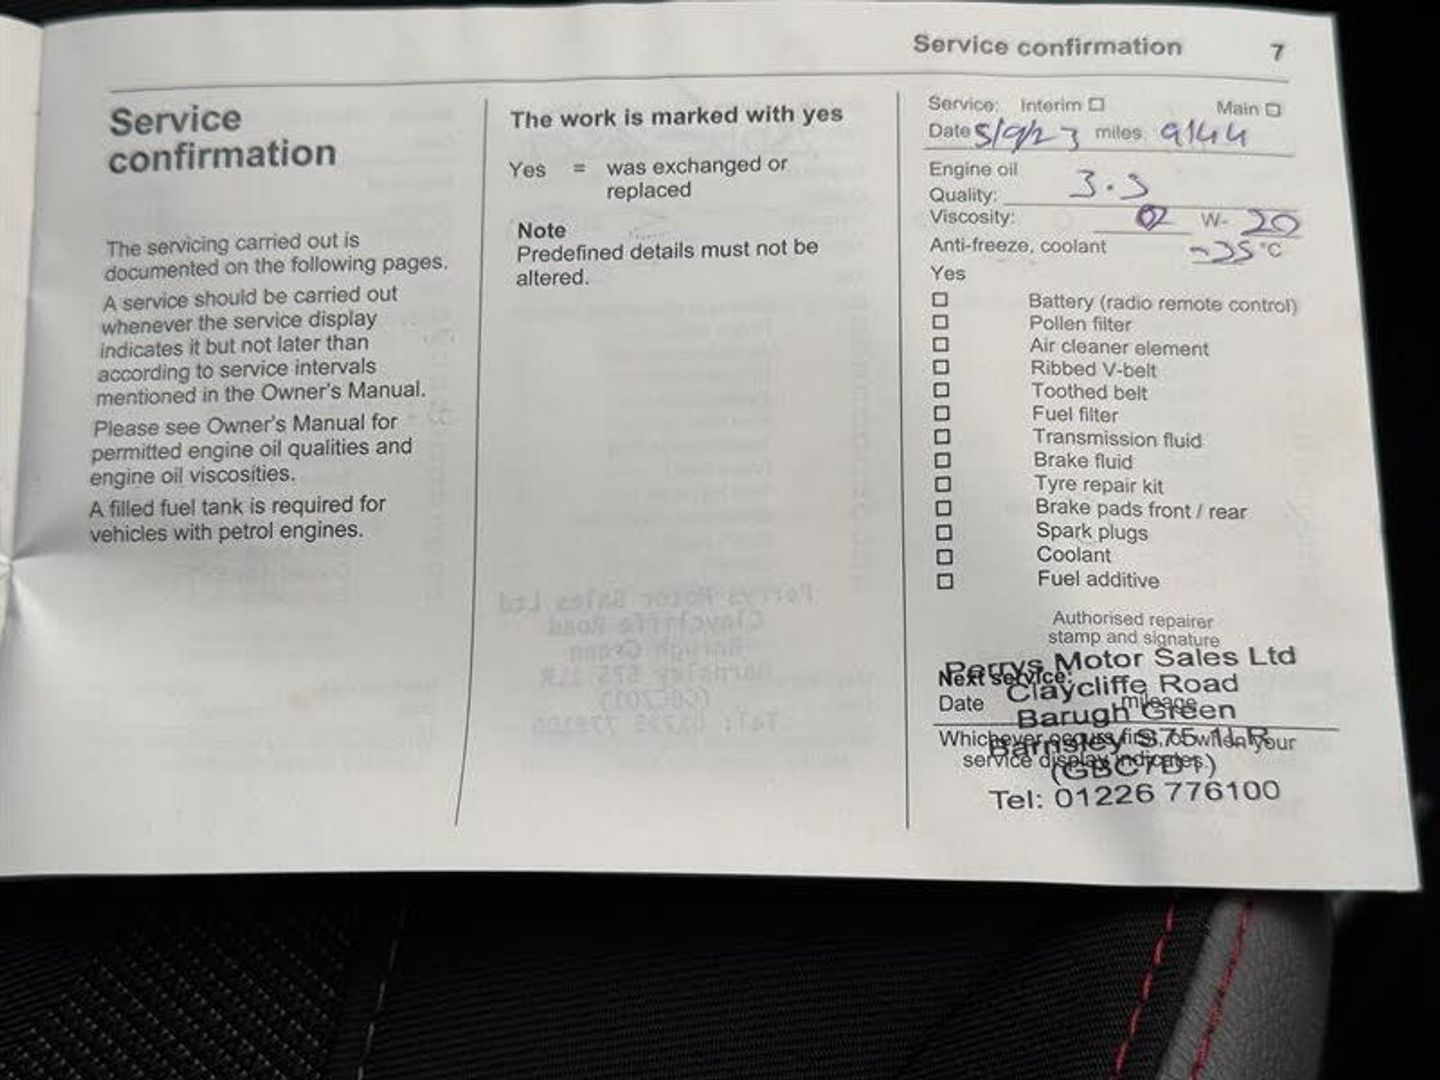 Service confirmation 7
Service
confirmation
The servicing carried out is
documented on the following pages.
A service should be carried out
whenever the service display
indicates it but not later than
according to service intervals
mentioned in the Owner's Manual.
Please see Owner's Manual for
permitted engine oil qualities and
engine oil viscosities.
A filled fuel tank is required for
vehicles with petrol engines.
The work is marked with yes
Yes = was exchanged or
replaced
Note
Predefined details must not be
altered.
Service: Interim ☐ Main ☐
Date 5/9/23 miles 9144
Engine oil
Quality: 3.5
Viscosity: 02 W- 20
Anti-freeze, coolant -35 °C
Yes
☐ Battery (radio remote control)
☐ Pollen filter
☐ Air cleaner element
☐ Ribbed V-belt
☐ Toothed belt
☐ Fuel filter
☐ Transmission fluid
☐ Brake fluid
☐ Tyre repair kit
☐ Brake pads front / rear
☐ Spark plugs
☐ Coolant
☐ Fuel additive
Authorised repairer
stamp and signature
Perrys Motor Sales Ltd
Next service:
Claycliffe Road
Date mileage
Barugh Green
Whichever occurs first, or when your
Barnsley S75 1LR
service display indicates.
(GBC7D1)
Tel: 01226 776100